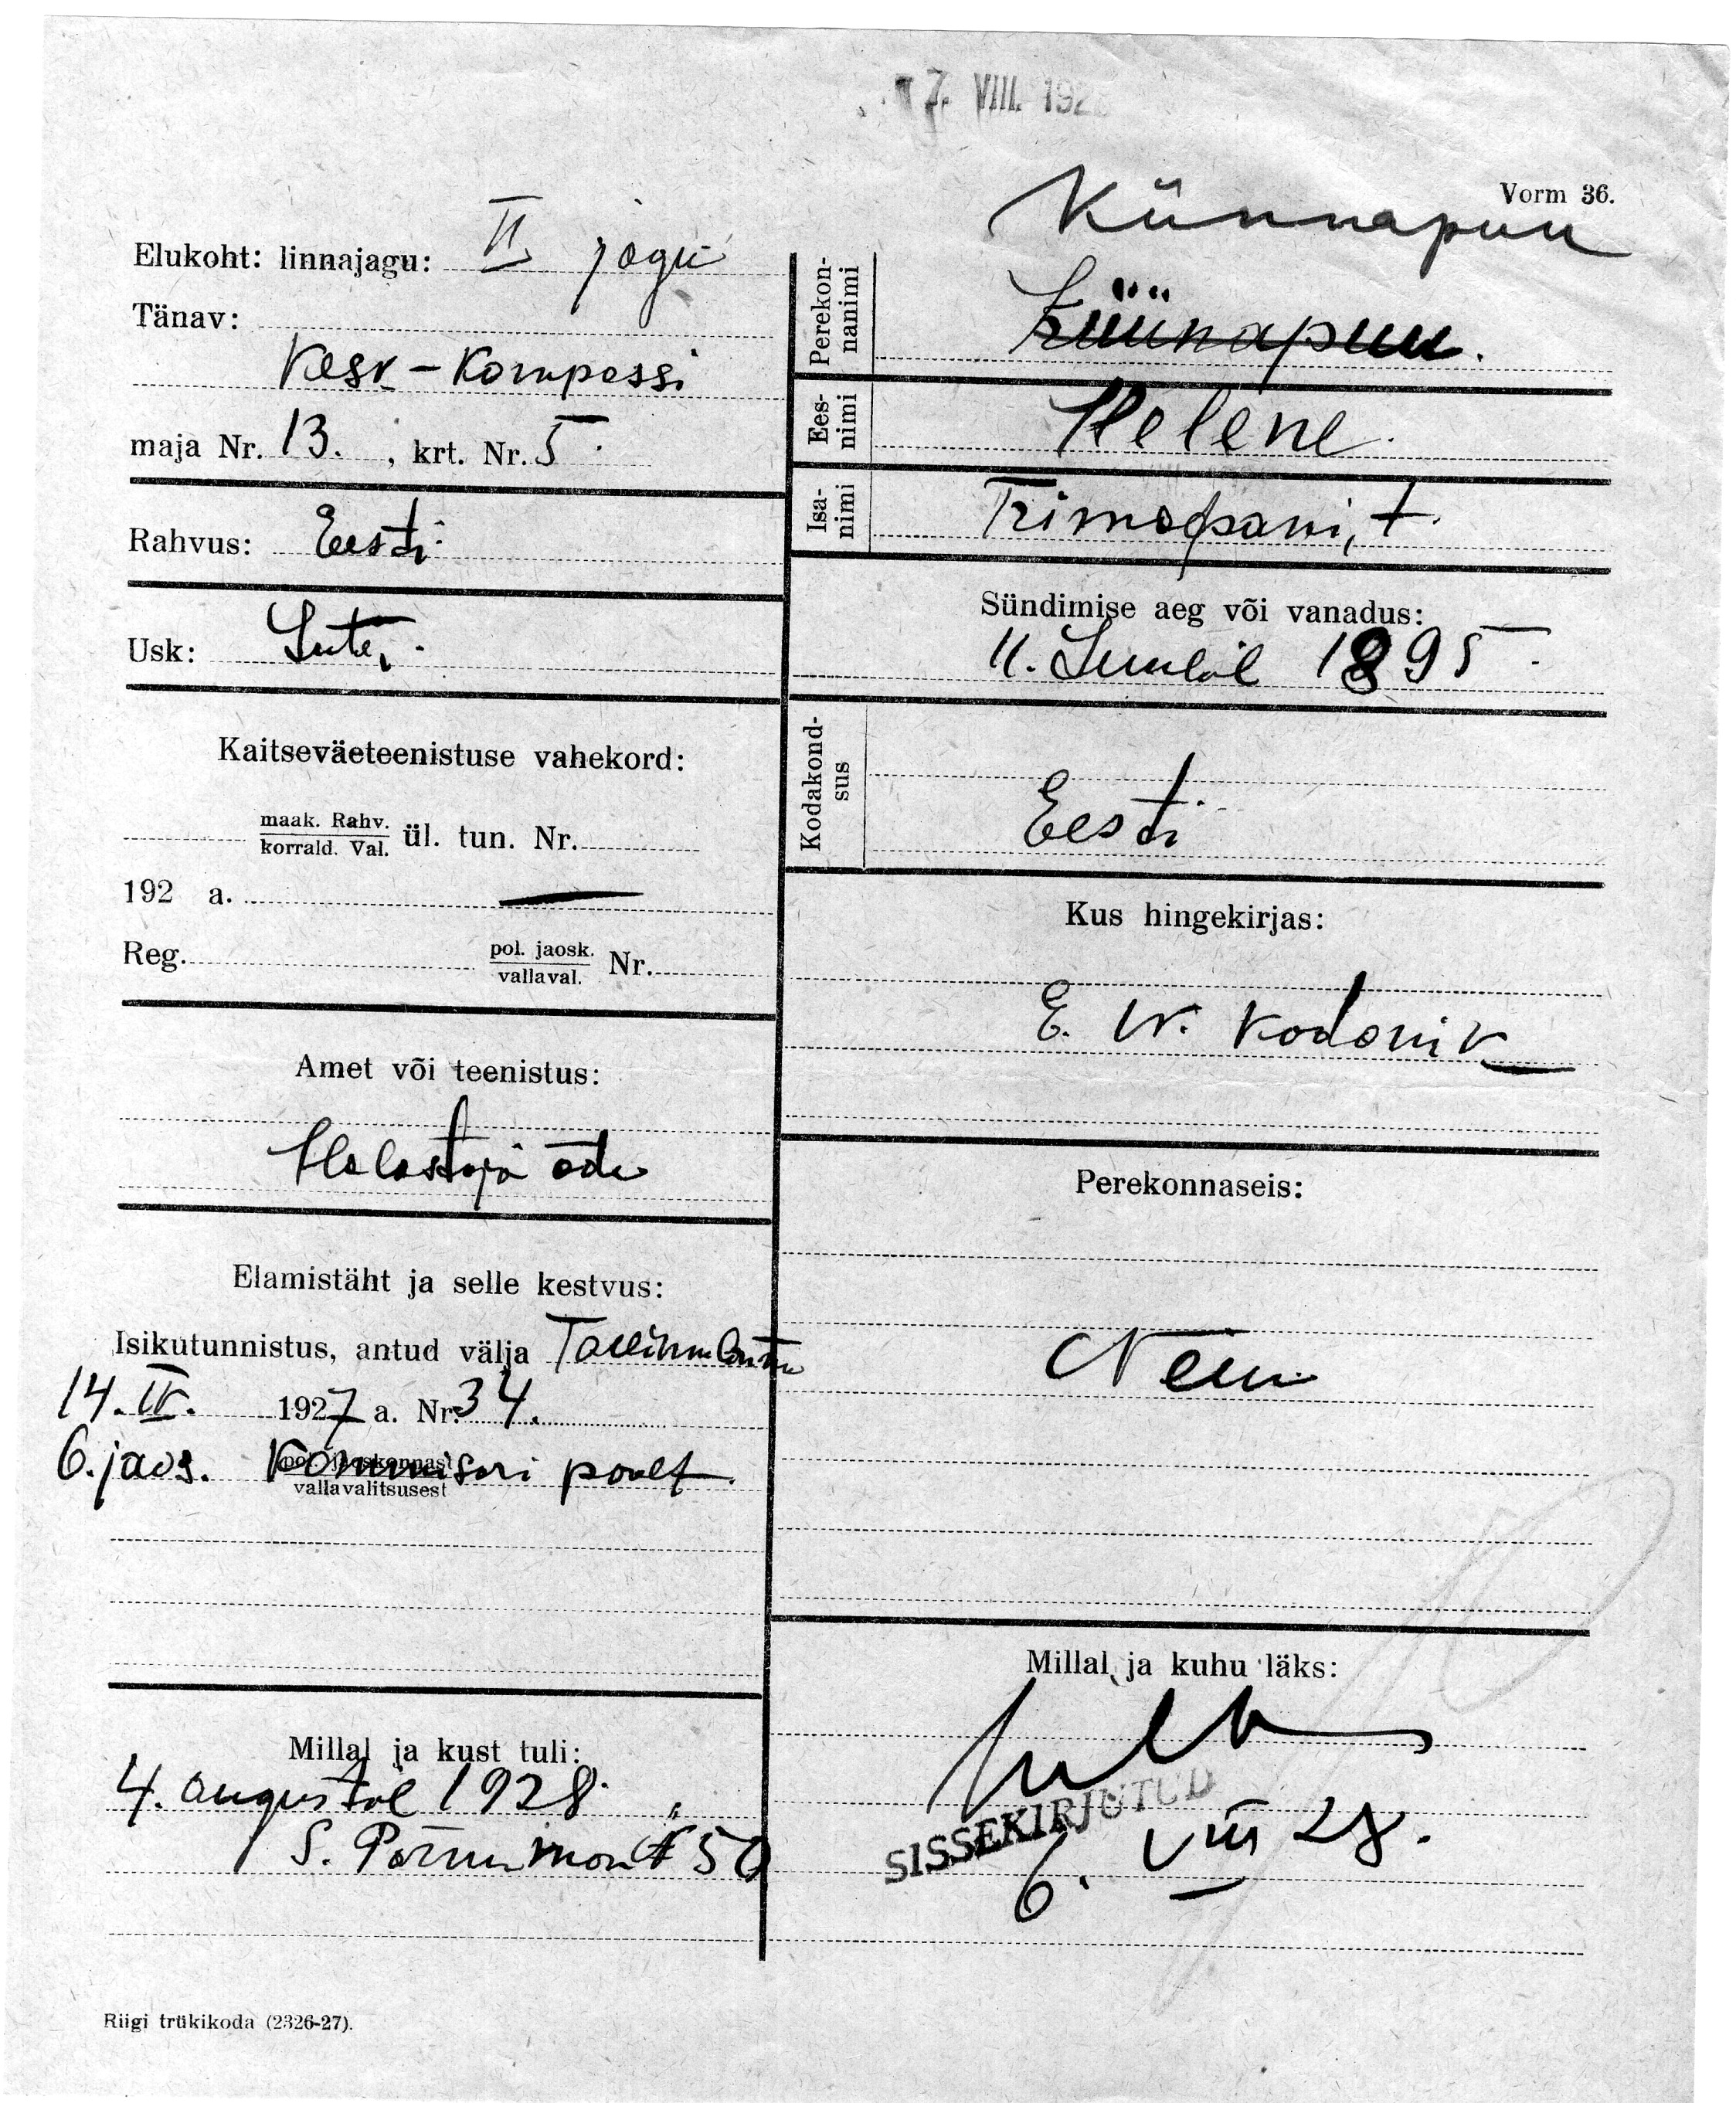 7. VIII. 192
Vorm 36.
Künnapuu
Elukoht: linnajagu: II jagu
Tänav:
Kesk-Kompassi
maja Nr. 13. , krt. Nr. 5.
Rahvus: Eesti
Usk: Luter.
Kaitseväeteenistuse vahekord:
maak. Rahv.
korrald. Val. ül. tun. Nr.
192 a. —
Reg. pol. jaosk.
vallaval. Nr.
Amet või teenistus:
Halastaja õde
Elamistäht ja selle kestvus:
Isikutunnistus, antud välja
14. IV. 1927 a. Nr. 34.
6. jaos. Kommisari poolt.
pol. jaoskonnast
vallavalitsusest
Millal ja kust tuli:
4. augustil 1928
S. Pärnu mnt 50
Perekon-
nanimi
Küünapuu.
Ees-
nimi Helene.
Isa-
nimi
Sündimise aeg või vanadus:
11. 1895.
Kodakond-
sus
Eesti
Kus hingekirjas:
E. W. Kodanik
Perekonnaseis:
Neiu
Millal ja kuhu läks:
SISSEKIRJUTUD
6. VIII 28.
Riigi trükikoda (2326-27).